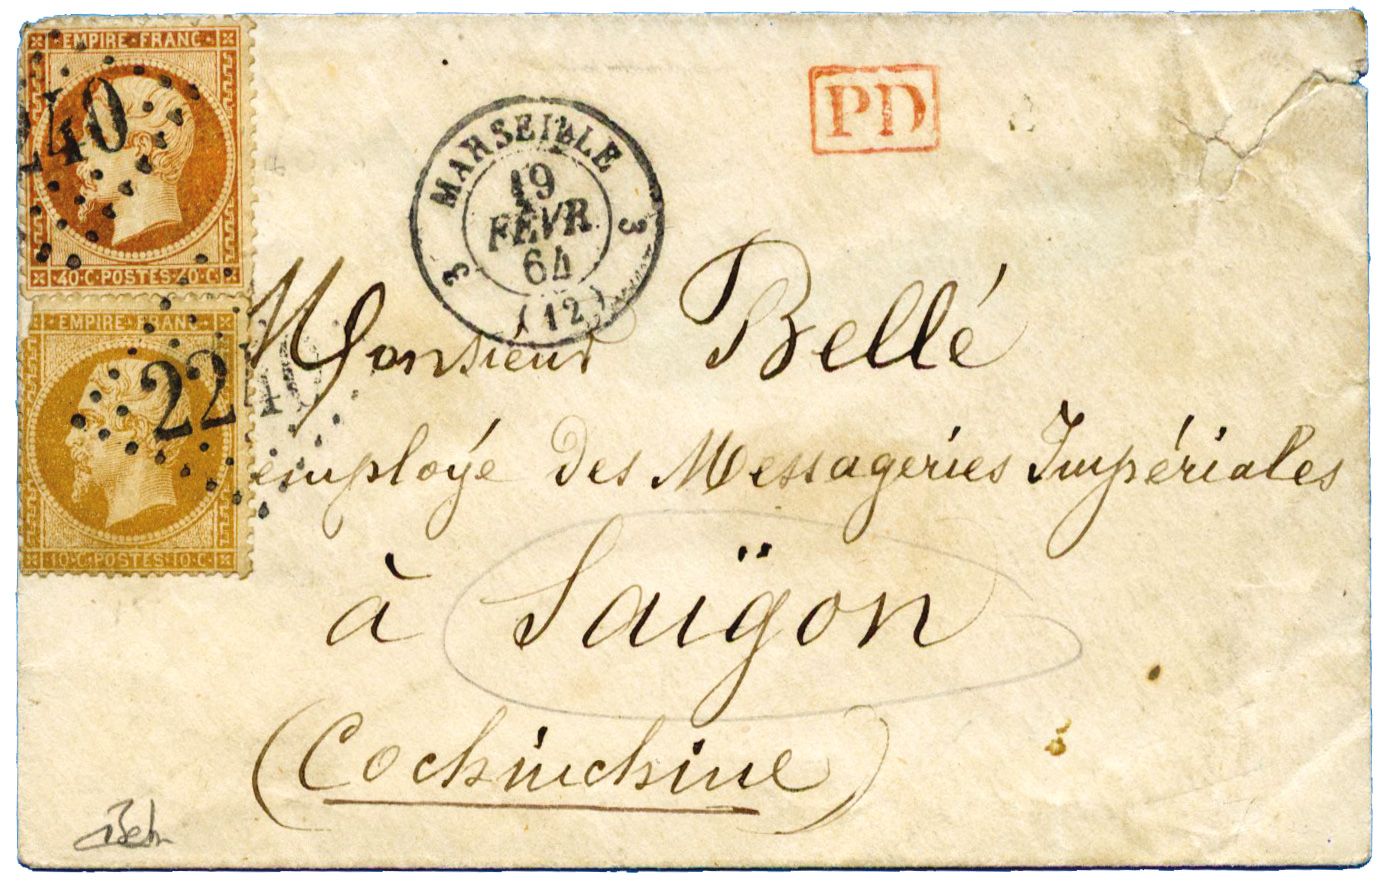 EMPIRE·FRANC
240
40·C·POSTES·40·C
EMPIRE·FRANC
2240
10·C·POSTES·10·C
MARSEILLE
3 3
19
FÉVR
64
(12)
PD
Monsieur Bellé
employé des Messageries Impériales
à Saïgon
(Cochinchine)